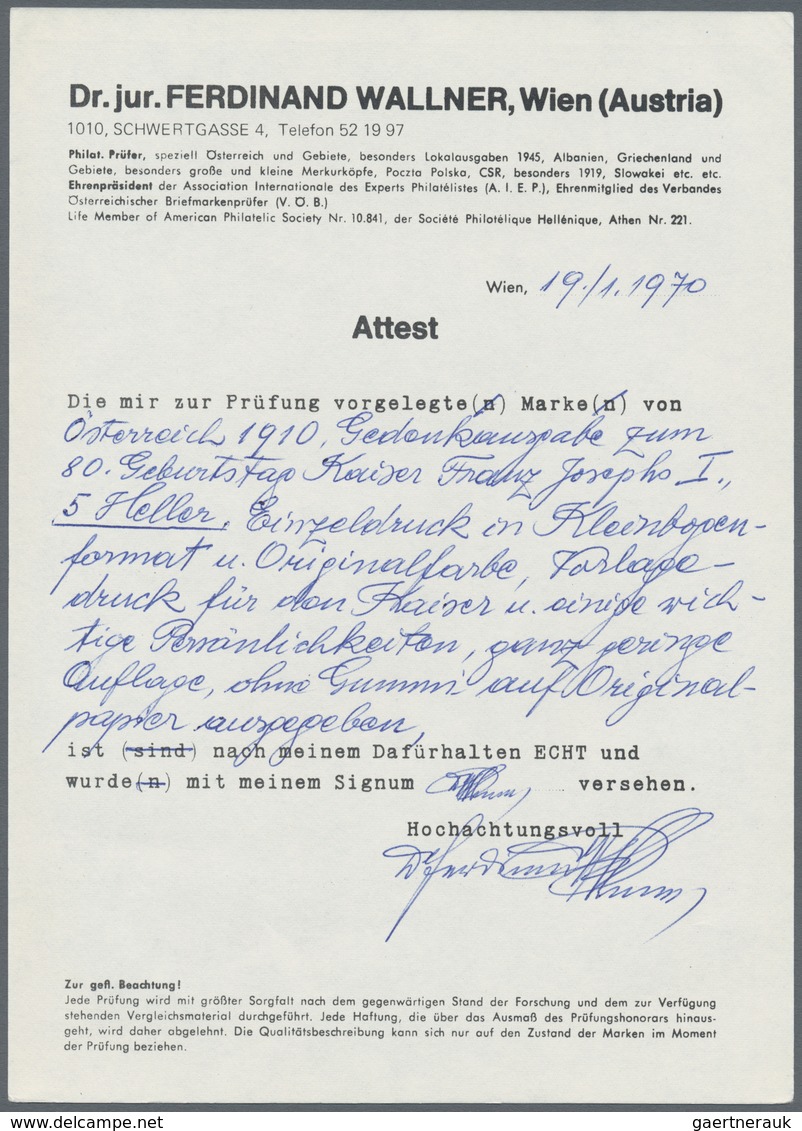 Dr. jur. FERDINAND WALLNER, Wien (Austria)
1010, SCHWERTGASSE 4, Telefon 52 19 97
Philat. Prüfer, speziell Österreich und Gebiete, besonders Lokalausgaben 1945, Albanien, Griechenland und
Gebiete, besonders große und kleine Merkurköpfe, Poczta Polska, CSR, besonders 1919, Slowakei etc. etc.
Ehrenpräsident der Association Internationale des Experts Philatélistes (A. I. E. P.), Ehrenmitglied des Verbandes
Österreichischer Briefmarkenprüfer (V. Ö. B.)
Life Member of American Philatelic Society Nr. 10.841, der Société Philotélique Hellénique, Athen Nr. 221.
Wien, 19./1.1970
Attest
Die mir zur Prüfung vorgelegte(n) Marke(n) von
Österreich 1910, Gedenkausgabe zum
80. Geburtstage Kaiser Franz Josephs I.,
5 Heller, Einzeldruck in Kleinbogen-
format u. Originalfarbe, Vorlage-
druck für den Kaiser u. einige wich-
tige Persönlichkeiten, ganz geringe
Auflage, ohne Gummi auf Original-
papier ausgegeben,
ist (sind) nach meinem Dafürhalten ECHT und
wurde(n) mit meinem Signum versehen.
Hochachtungsvoll
Zur gefl. Beachtung!
Jede Prüfung wird mit größter Sorgfalt nach dem gegenwärtigen Stand der Forschung und dem zur Verfügung
stehenden Vergleichsmaterial durchgeführt. Jede Haftung, die über das Ausmaß des Prüfungshonorars hinaus-
geht, wird daher abgelehnt. Die Qualitätsbeschreibung kann sich nur auf den Zustand der Marken im Moment
der Prüfung beziehen.
delcampe.net
gaertnerauk